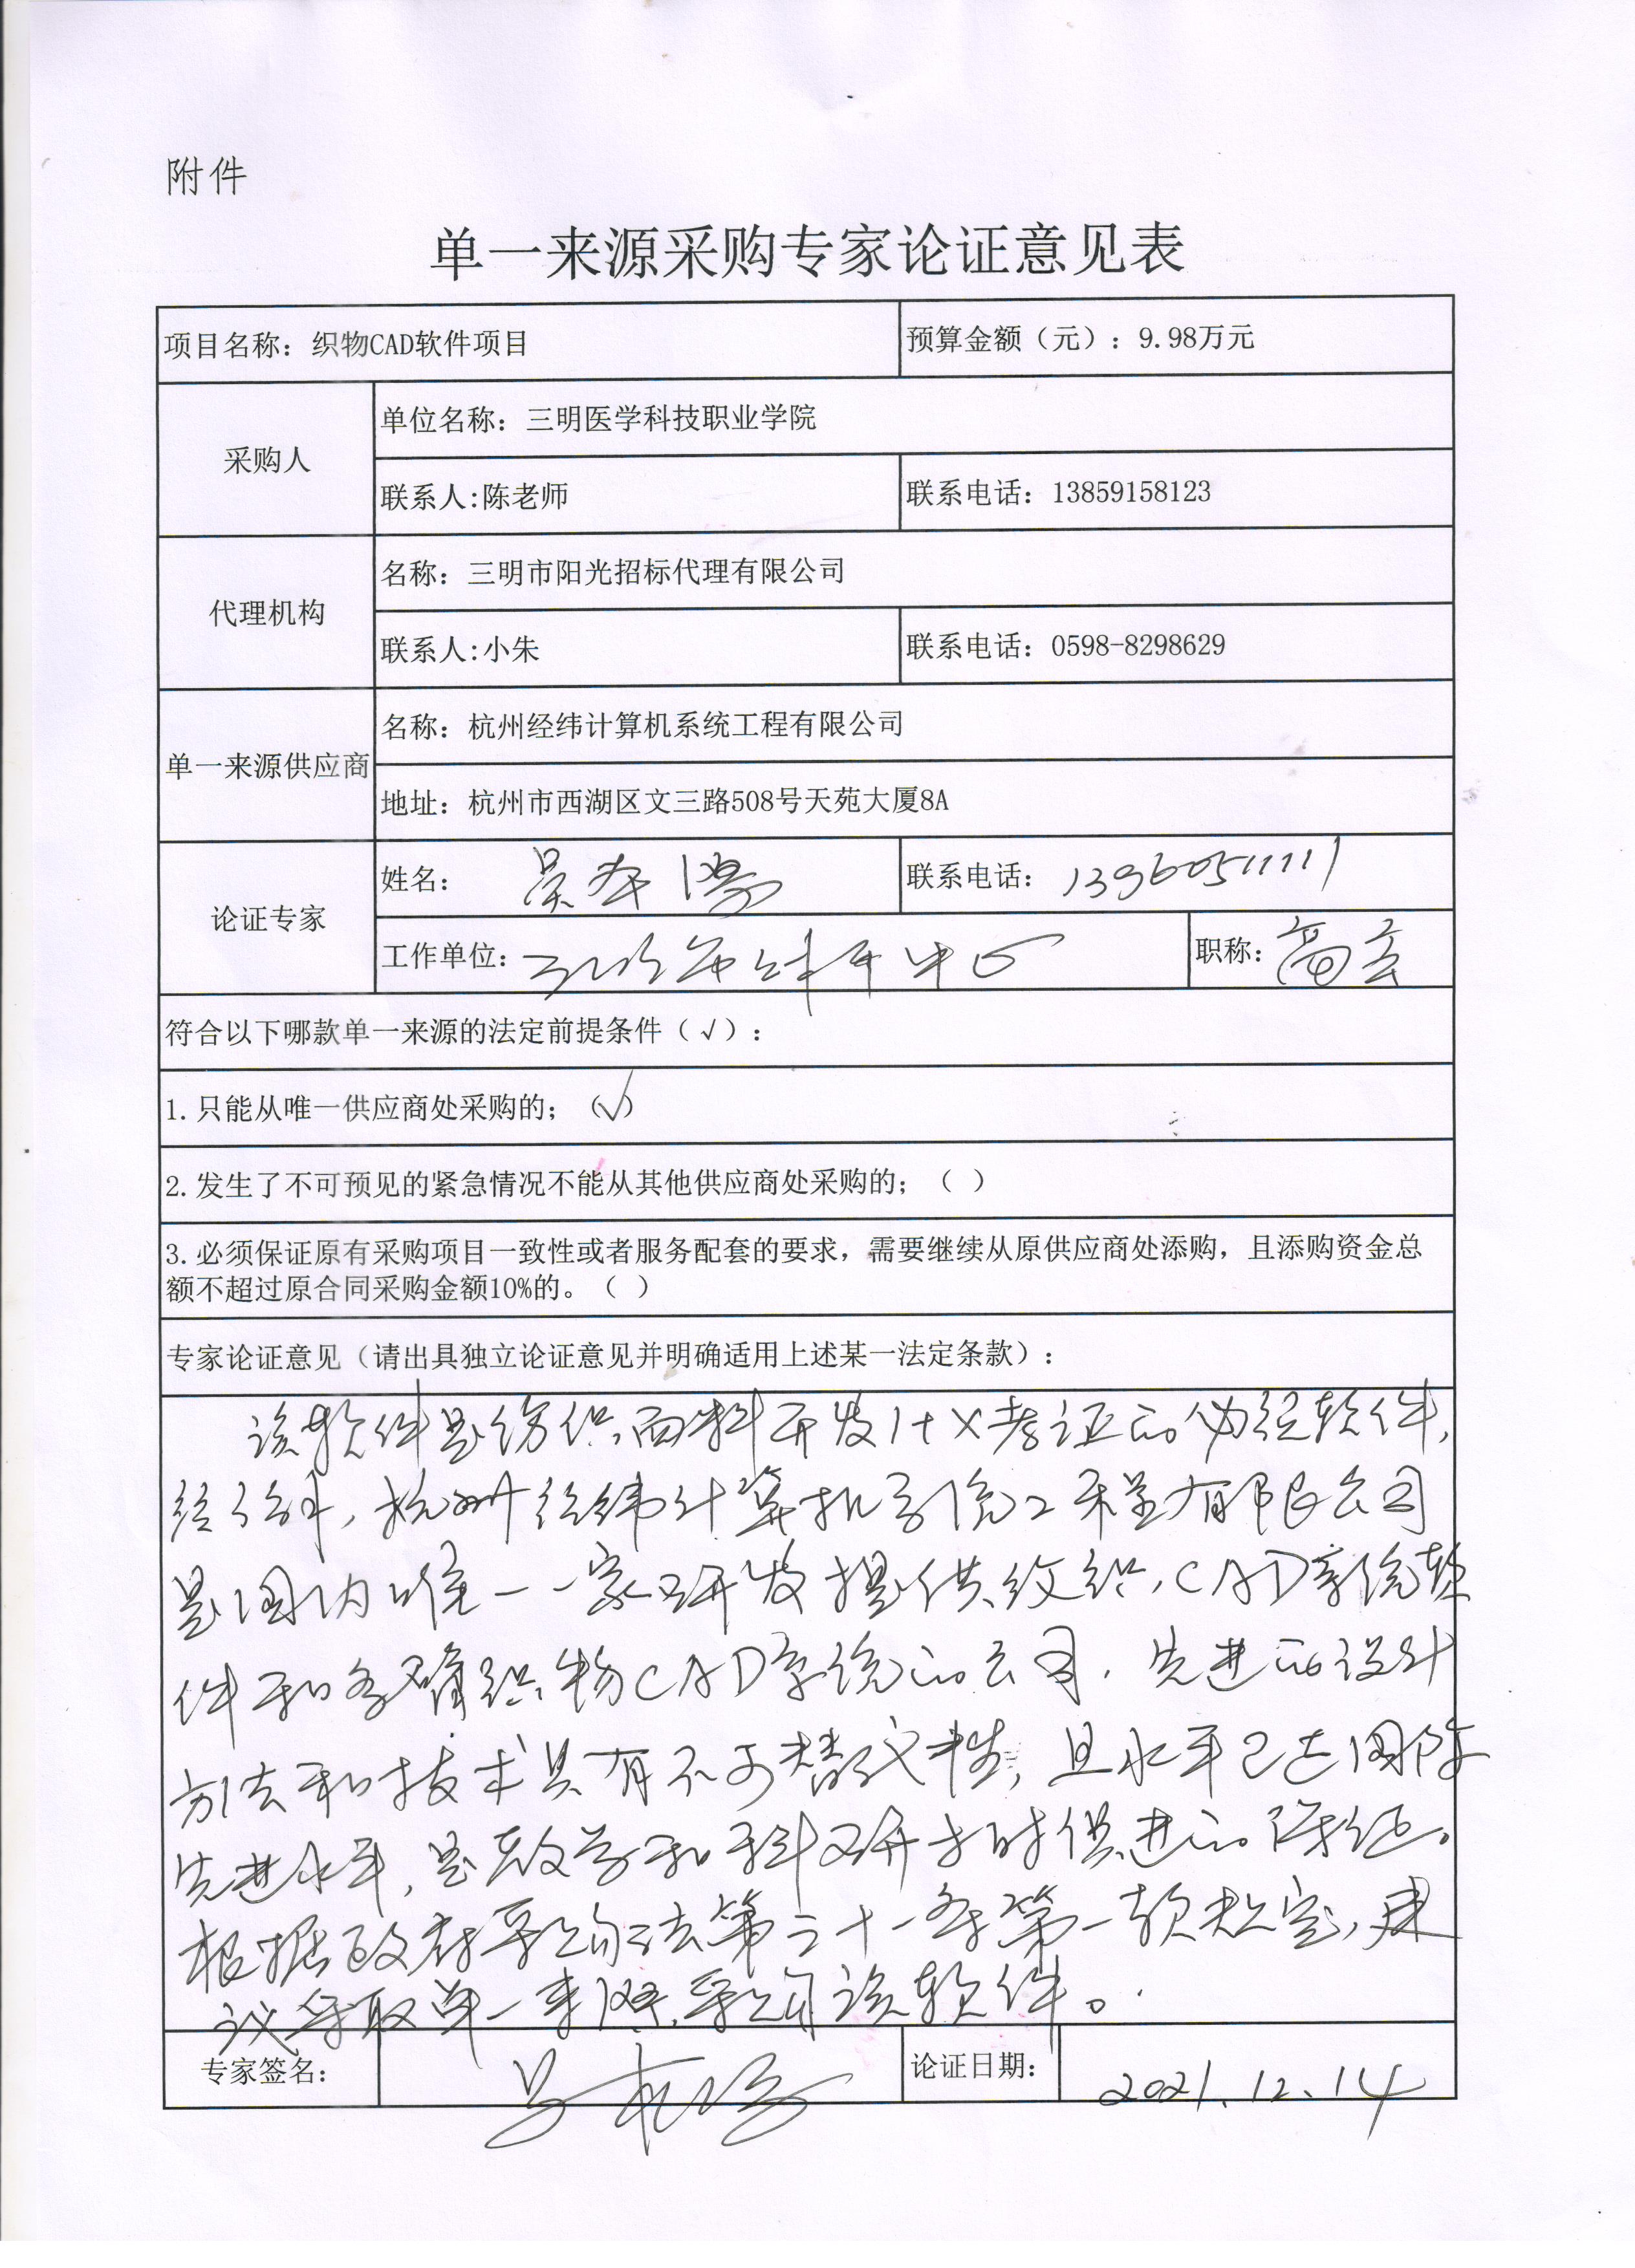 附件
单一来源采购专家论证意见表
项目名称：织物CAD软件项目
预算金额（元）：9.98万元
采购人
单位名称：三明医学科技职业学院
联系人:陈老师
联系电话：13859158123
代理机构
名称：三明市阳光招标代理有限公司
联系人:小朱
联系电话：0598-8298629
单一来源供应商
名称：杭州经纬计算机系统工程有限公司
地址：杭州市西湖区文三路508号天苑大厦8A
论证专家
姓名：吴
联系电话：13960511111
工作单位：中心
职称：高
符合以下哪款单一来源的法定前提条件（√）：
1.只能从唯一供应商处采购的；（√）
2.发生了不可预见的紧急情况不能从其他供应商处采购的；（ ）
3.必须保证原有采购项目一致性或者服务配套的要求，需要继续从原供应商处添购，且添购资金总
额不超过原合同采购金额10%的。（ ）
专家论证意见（请出具独立论证意见并明确适用上述某一法定条款）：
该软件是纺织面料开发1+X考证的必经软件，
杭州经纬计算机系统工程有限公司
是国内唯一一家研发提供纹织CAD系统软
件和多臂织物CAD系统的公司，先进的设计
方法和技术具有不可替代性，且水平已达国际
先进水平，是教学和科研与时俱进的保证。
根据政府采购法第三十一条第一款规定，建
议采取单一来源采购该软件。
专家签名：
吴
论证日期：
2021.12.14